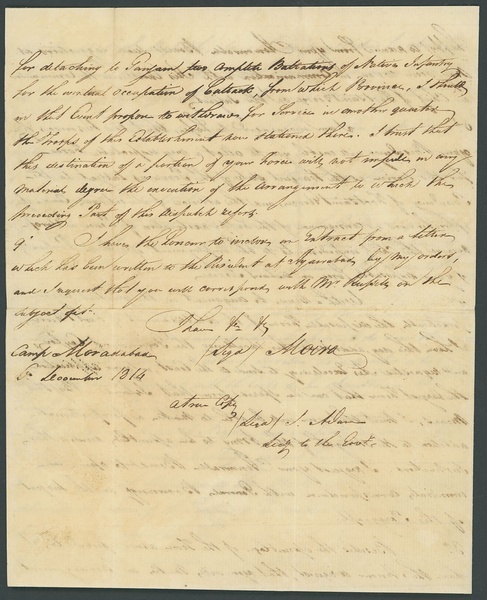 for detaching to Ganjam two complete Battalions of Native Infantry
for the eventual occupation of Cuttack, from which Province, I should
in that Event propose to withdraw for Service in another quarter
the Troops of this Establishment now stationed there. I trust that
this destination of a portion of your force will not impede in any
material degree the execution of the Arrangement to which the
preceding Part of this Dispatch refers.
9 I have the honour to inclose an Extract from a letter
which has been written to the Resident at Hyderabad by my orders,
and I request that you will correspond with Mr Russell on the
subject of it.
I have &c &c
Camp Moradabad (Sigd) Moira
5 December 1814
a true Copy
(Sigd) J. Adam
Secy to the Govt